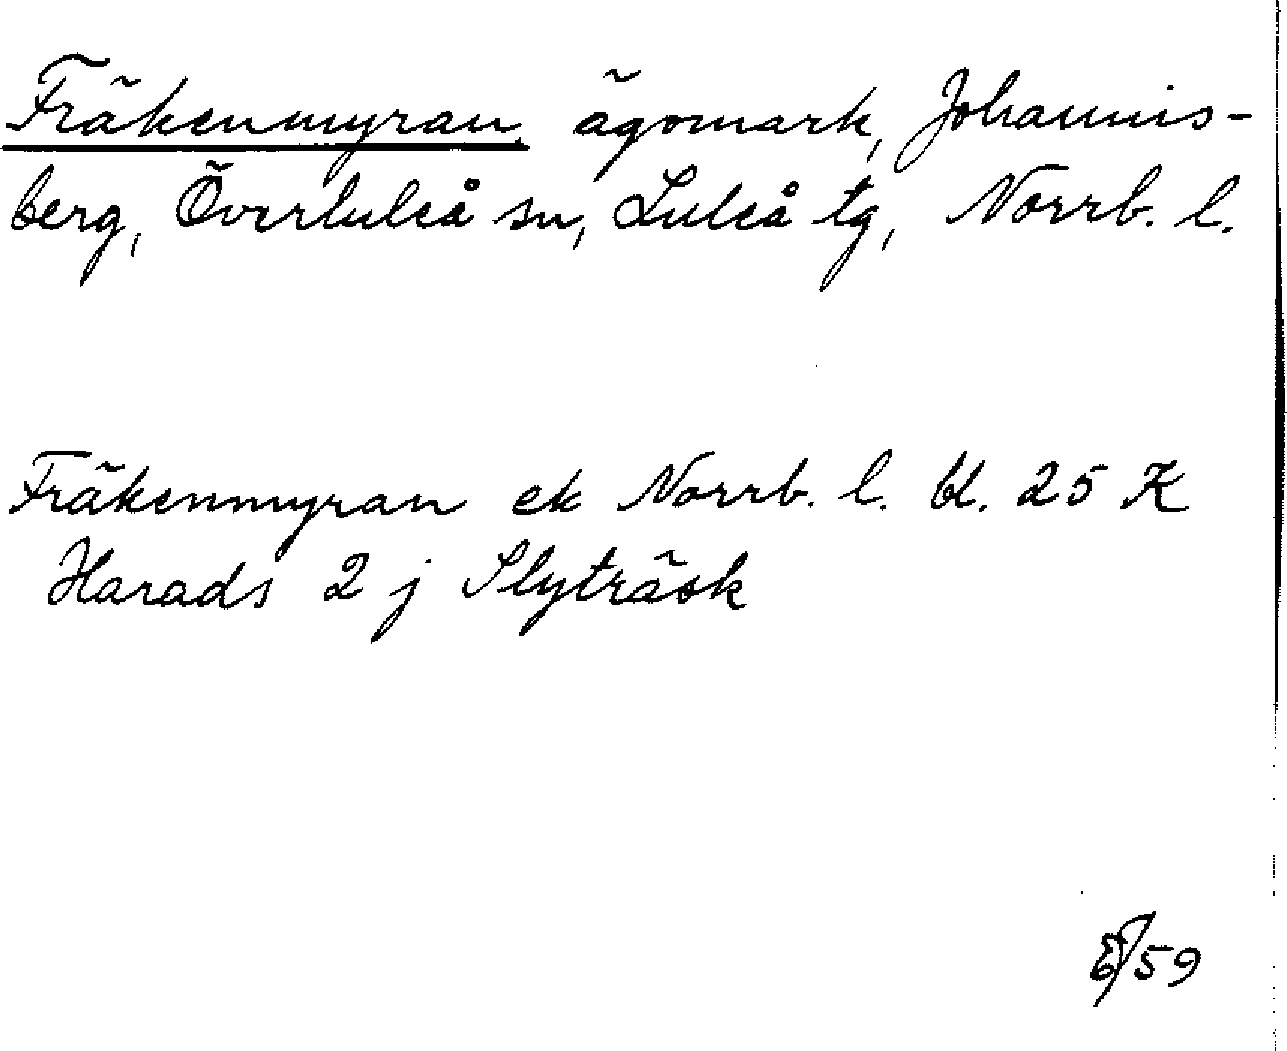 Fräkenmyran, ägomark, Johannis-
berg, Överluleå sn, Luleå tg, Norrb. l.
Fräkenmyran ek Norrb. l. bl. 25 K
Harads 2 j Slyträsk
/59